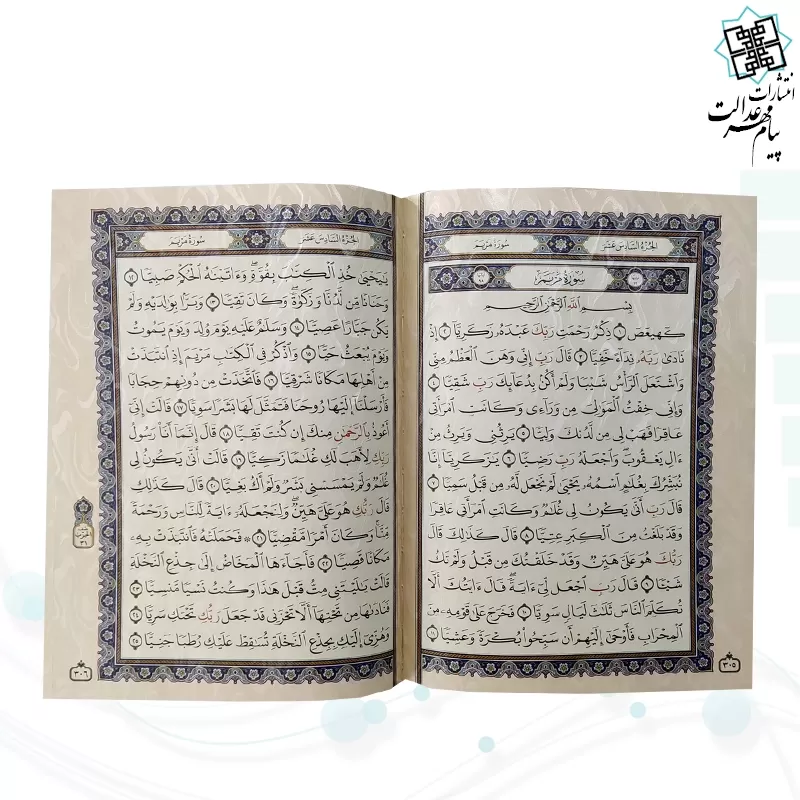 انتشارات
پیام مهر عدالت
الجزء السادس عشر
سورة مريم
سُورَةُ مَرْيَمَ
بِسْمِ اللَّهِ الرَّحْمَٰنِ الرَّحِيمِ
كهيعص ١ ذِكْرُ رَحْمَتِ رَبِّكَ عَبْدَهُ زَكَرِيَّا ٢ إِذْ
نَادَىٰ رَبَّهُ نِدَاءً خَفِيًّا ٣ قَالَ رَبِّ إِنِّي وَهَنَ الْعَظْمُ مِنِّي
وَاشْتَعَلَ الرَّأْسُ شَيْبًا وَلَمْ أَكُنْ بِدُعَائِكَ رَبِّ شَقِيًّا ٤
وَإِنِّي خِفْتُ الْمَوَالِيَ مِن وَرَاءِي وَكَانَتِ امْرَأَتِي
عَاقِرًا فَهَبْ لِي مِن لَّدُنكَ وَلِيًّا ٥ يَرِثُنِي وَيَرِثُ مِنْ
ءَالِ يَعْقُوبَ وَاجْعَلْهُ رَبِّ رَضِيًّا ٦ يَٰزَكَرِيَّا إِنَّا
نُبَشِّرُكَ بِغُلَٰمٍ اسْمُهُ يَحْيَىٰ لَمْ نَجْعَل لَّهُ مِن قَبْلُ سَمِيًّا ٧
قَالَ رَبِّ أَنَّىٰ يَكُونُ لِي غُلَٰمٌ وَكَانَتِ امْرَأَتِي عَاقِرًا
وَقَدْ بَلَغْتُ مِنَ الْكِبَرِ عِتِيًّا ٨ قَالَ كَذَٰلِكَ قَالَ
رَبُّكَ هُوَ عَلَيَّ هَيِّنٌ وَقَدْ خَلَقْتُكَ مِن قَبْلُ وَلَمْ تَكُ
شَيْئًا ٩ قَالَ رَبِّ اجْعَل لِّي ءَايَةً قَالَ ءَايَتُكَ أَلَّا
تُكَلِّمَ النَّاسَ ثَلَٰثَ لَيَالٍ سَوِيًّا ١٠ فَخَرَجَ عَلَىٰ قَوْمِهِ مِنَ
الْمِحْرَابِ فَأَوْحَىٰ إِلَيْهِمْ أَن سَبِّحُوا بُكْرَةً وَعَشِيًّا ١١
٣٠٥
الجزء السادس عشر
سورة مريم
يَٰيَحْيَىٰ خُذِ الْكِتَٰبَ بِقُوَّةٍ وَءَاتَيْنَٰهُ الْحُكْمَ صَبِيًّا ١٢
وَحَنَانًا مِّن لَّدُنَّا وَزَكَوٰةً وَكَانَ تَقِيًّا ١٣ وَبَرًّا بِوَالِدَيْهِ وَلَمْ
يَكُن جَبَّارًا عَصِيًّا ١٤ وَسَلَٰمٌ عَلَيْهِ يَوْمَ وُلِدَ وَيَوْمَ يَمُوتُ
وَيَوْمَ يُبْعَثُ حَيًّا ١٥ وَاذْكُرْ فِي الْكِتَٰبِ مَرْيَمَ إِذِ انتَبَذَتْ
مِنْ أَهْلِهَا مَكَانًا شَرْقِيًّا ١٦ فَاتَّخَذَتْ مِن دُونِهِمْ حِجَابًا
فَأَرْسَلْنَا إِلَيْهَا رُوحَنَا فَتَمَثَّلَ لَهَا بَشَرًا سَوِيًّا ١٧ قَالَتْ إِنِّي
أَعُوذُ بِالرَّحْمَٰنِ مِنكَ إِن كُنتَ تَقِيًّا ١٨ قَالَ إِنَّمَا أَنَا۠ رَسُولُ
رَبِّكِ لِأَهَبَ لَكِ غُلَٰمًا زَكِيًّا ١٩ قَالَتْ أَنَّىٰ يَكُونُ لِي
غُلَٰمٌ وَلَمْ يَمْسَسْنِي بَشَرٌ وَلَمْ أَكُ بَغِيًّا ٢٠ قَالَ كَذَٰلِكِ
قَالَ رَبُّكِ هُوَ عَلَيَّ هَيِّنٌ وَلِنَجْعَلَهُ ءَايَةً لِّلنَّاسِ وَرَحْمَةً
مِّنَّا وَكَانَ أَمْرًا مَّقْضِيًّا ٢١ فَحَمَلَتْهُ فَانتَبَذَتْ بِهِ
مَكَانًا قَصِيًّا ٢٢ فَأَجَاءَهَا الْمَخَاضُ إِلَىٰ جِذْعِ النَّخْلَةِ
قَالَتْ يَٰلَيْتَنِي مِتُّ قَبْلَ هَٰذَا وَكُنتُ نَسْيًا مَّنسِيًّا ٢٣
فَنَادَىٰهَا مِن تَحْتِهَا أَلَّا تَحْزَنِي قَدْ جَعَلَ رَبُّكِ تَحْتَكِ سَرِيًّا ٢٤
وَهُزِّي إِلَيْكِ بِجِذْعِ النَّخْلَةِ تُسَٰقِطْ عَلَيْكِ رُطَبًا جَنِيًّا ٢٥
حزب
٣١
٣٠٦